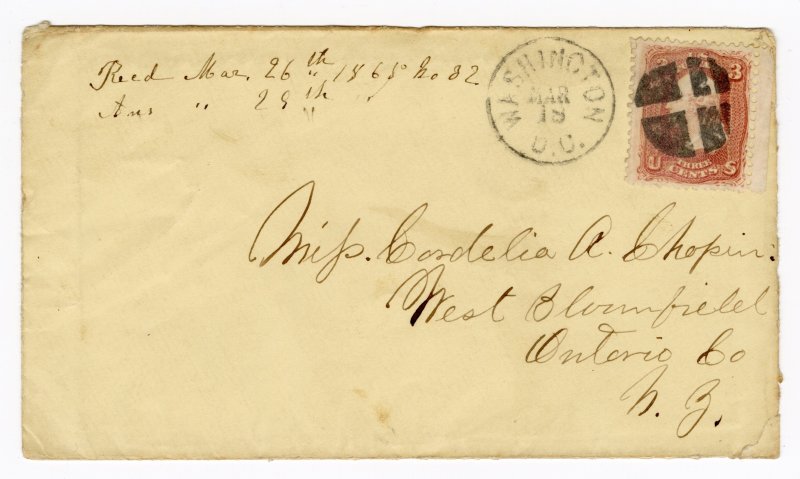 Recd Mar. 26th 1865 No 32
Ans " 29th "
WASHINGTON
MAR
18
D.C.
3 3
U THREE CENTS S
Miss. Cordelia A. Chapin:
West Bloomfield
Ontario Co
N. Y.